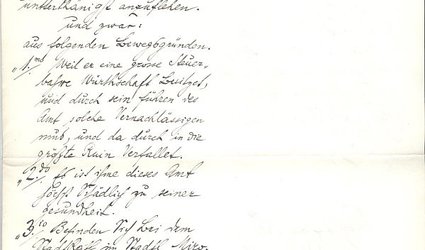 unterthänigst anzuflehen.
und zwar:
aus folgenden Bewegsgründen.
„1mo Weil er eine grosse Steuer,
bahre Wirthschaft besitzet,
und durch sein führen des
Amt, solche Vernachlässigen
muß, und da durch in die
größte Ruin Verfallet.
„2do Es ist ihme dieses Amt
höchst schädlich zu seiner
gesundheit.
„3tio Befinden sich bei dem
im Stadel